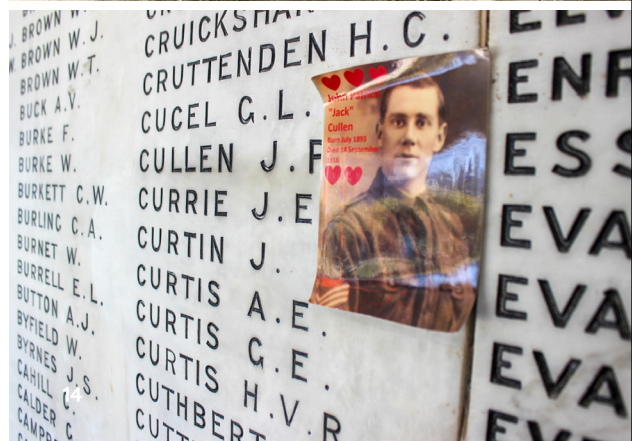 BROWN W.
BROWN W.J.
BROWN W.T.
BUCK A.V.
BURKE F.
BURKE W.
BURKETT C.W.
BURLING C.A.
BURNET W.
BURRELL E.L.
BUTTON A.J.
BYFIELD W.
BYRNES J.S.
CAHILL
CALDER C
CAMPB
CRUICKSHAN
CRUTTENDEN H.C.
CUCEL G.L.
CULLEN J.P
CURRIE J.E
CURTIN J.
CURTIS A.E.
CURTIS G.E.
CURTIS H.V.R
CUTHBERT
CUTT
John Patrick
"Jack"
Cullen
Born July 1893
Died 14 September
ENR
ESS
EVA
EVA
EVA
EV
14